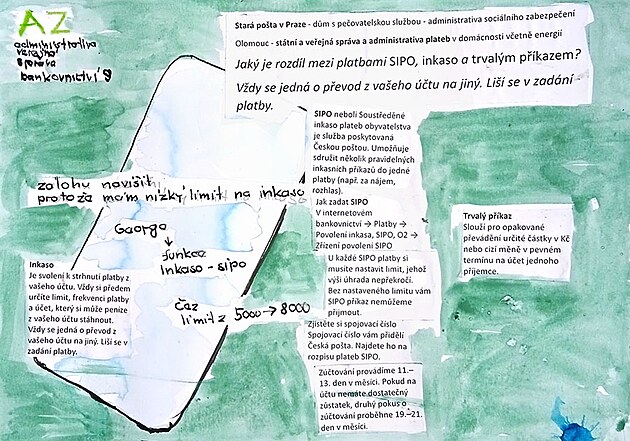 AZ
administrativa
veřejná
správa
bankovnictví
Stará pošta v Praze - dům s pečovatelskou službou - administrativa sociálního zabezpečení
Olomouc - státní a veřejná správa a administrativa plateb v domácnosti včetně energií
Jaký je rozdíl mezi platbami SIPO, inkaso a trvalým příkazem?
Vždy se jedná o převod z vašeho účtu na jiný. Liší se v zadání
platby.
SIPO neboli Soustředěné
inkaso plateb obyvatelstva
je služba poskytovaná
Českou poštou. Umožňuje
sdružit několik pravidelných
inkasních příkazů do jedné
platby (např. za nájem,
rozhlas).
Jak zadat SIPO
V internetovém
bankovnictví → Platby →
Povolení inkasa, SIPO, O2 →
Zřízení povolení SIPO
U každé SIPO platby si
musíte nastavit limit, jehož
výši úhrada nepřekročí.
Bez nastaveného limitu vám
SIPO příkaz nemůžeme
přijmout.
Zjistěte si spojovací číslo
Spojovací číslo vám přidělí
Česká pošta. Najdete ho na
rozpisu plateb SIPO.
Zúčtování provádíme 11.–
13. den v měsíci. Pokud na
účtu nemáte dostatečný
zůstatek, druhý pokus o
zúčtování proběhne 19.–21.
den v měsíci.
Trvalý příkaz
Slouží pro opakované
převádění určité částky v Kč
nebo cizí měně v pevném
termínu na účet jednoho
příjemce.
zálohu navíšit,
protože mám nízký limit na inkaso
George
↓
funkce
Inkaso - sipo
čaz
limit z 5000 → 8000
Inkaso
Je svolení k strhnutí platby z
vašeho účtu. Vždy si předem
určíte limit, frekvenci platby
a účet, který si může peníze
z vašeho účtu stáhnout.
Vždy se jedná o převod z
vašeho účtu na jiný. Liší se v
zadání platby.